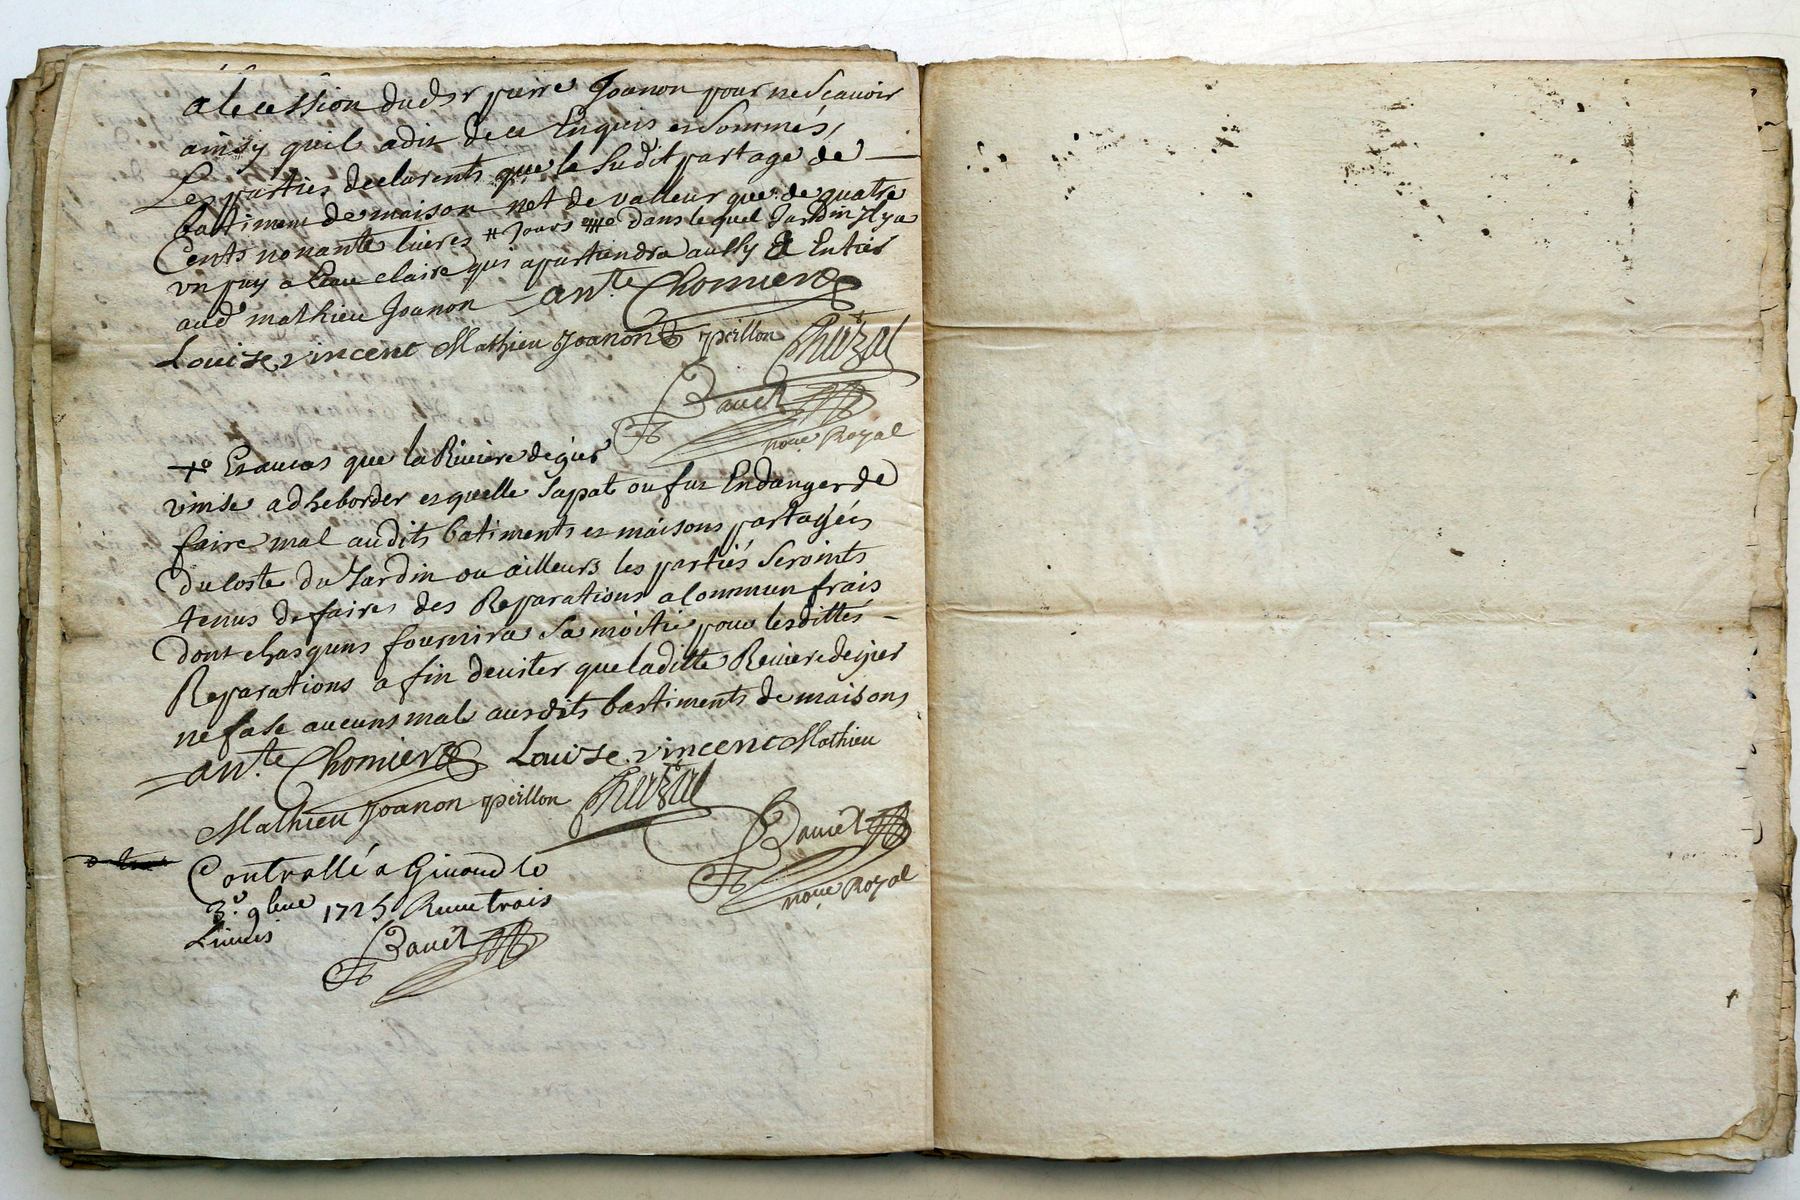 a lecession dudsr pierre Joanon pour ne Scauoir
ainsy quil a dit de ce Enquis et Sommés,
Les parties declarents que le Sudit partage de
battiment de maison net de valleur que de quatre
Cents nonante liures # Jours dans lequel Jardin Il y a
vn puy a Eau claire qui apartiendra aussy Entier
aud mathieu Joanon Ante. Chomier
Louise vincent Mathieu Joanon perillon Chazal
Bauet
nore Royal
Et au cas que la Riuiere de gier
vinse a dheborder et quelle Sapat ou fut En danger de
faire mal audits batiments et maisons partagées
Du Coste du Jardin ou ailleurs les partiés Seroints
tenus de faires des Reparations a Commun frais
Dont chasquens fournira Sa moitié pour lesdittes
Reparations a fin deuiter que laditte Reuiere de gier
ne fase aucuns mal ausdits bastiments de maisons
Ante. Chomier Louise vincent Mathieu
Mathieu Joanon perillon Chazal
Bauet
nore Royal
Controllé a Giuord le
3e. 9bre 1725 Receu trois
Liures
Bauet